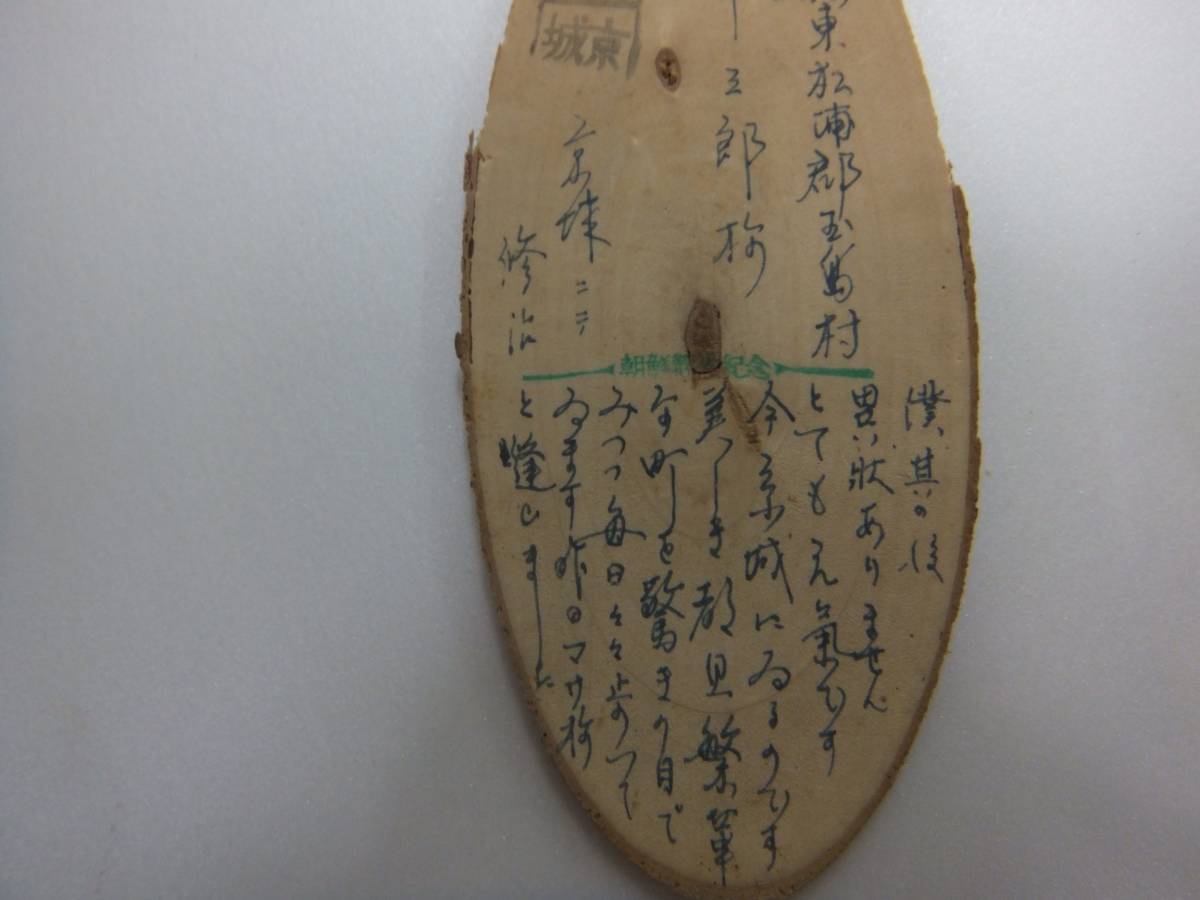 東松浦郡玉島村
三郎様
京城ニテ
修治
京城
朝鮮 紀念
僕、其の後
異状ありません
とても元氣です
今京城にゐるのです
美しき都見繁華
な町を驚きの目で
みつつ毎日々々
ゐます昨日マサ様
と逢ひました